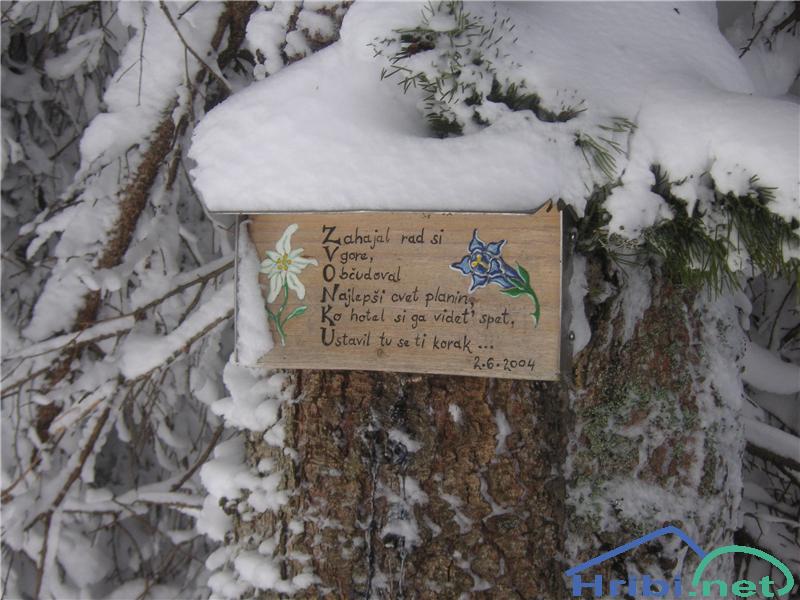 Zahajal rad si
V gore,
Občudoval
Najlepši cvet planin,
Ko hotel si ga videt' spet,
Ustavil tu se ti korak...
2.6.2004
Hribi.net